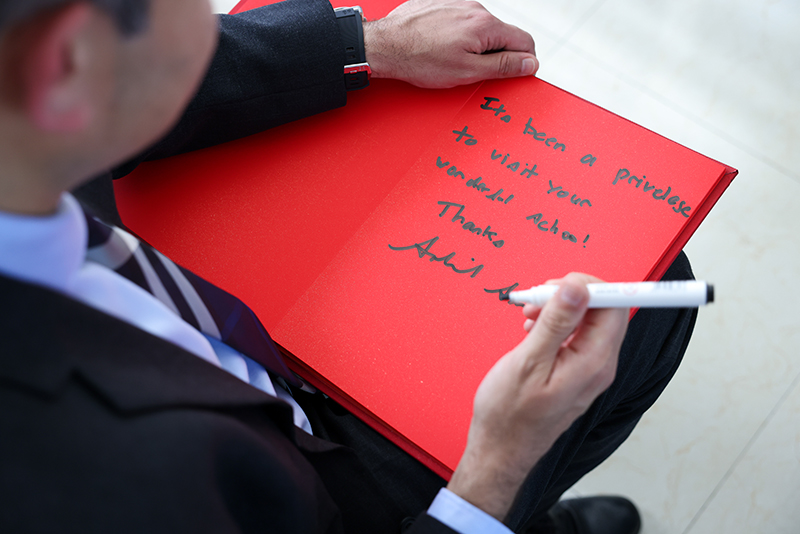 Its been a privelage
to visit your
wonderful school!
Thanks